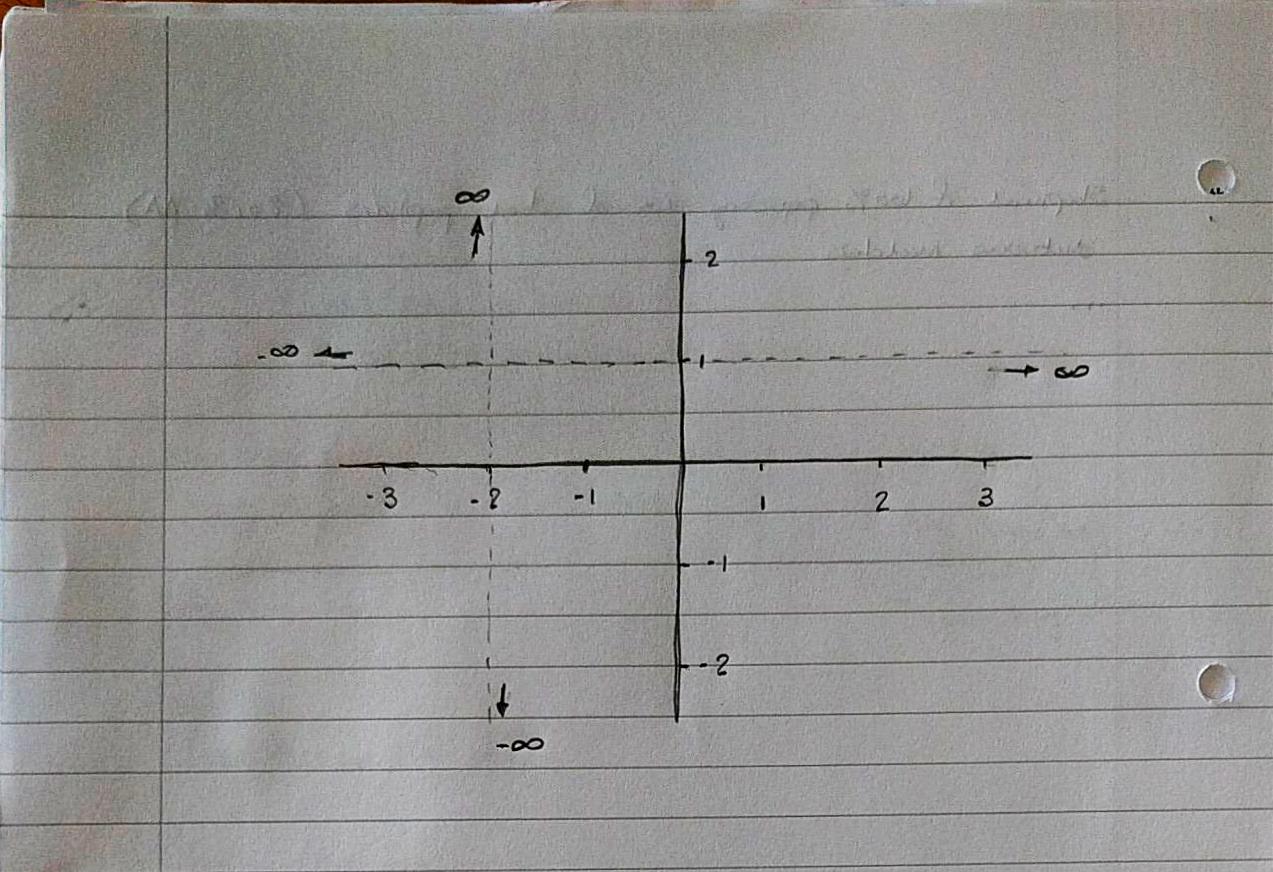 ∞
2
-∞
1
∞
-3 -2 -1 1 2 3
-1
-2
-∞